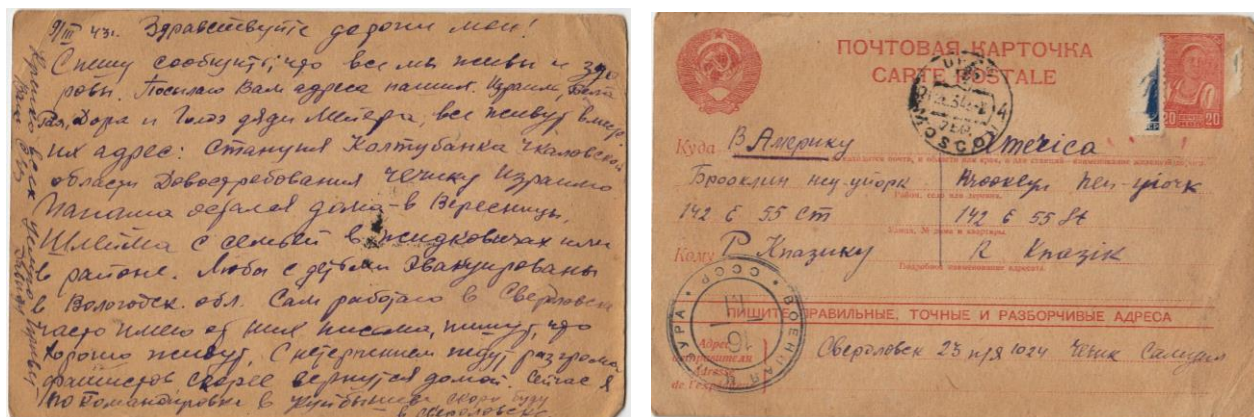 9/III 43г. Здравствуйте дорогие мои!
Спешу сообщить, что все мы живы и здо
ровы. Посылаю Вам адреса наших. Израиль,
Рая, Дора и дяди Мейера, все живут вместе
их адрес: станция Колтубанка Чкаловской
области Довостребования Чечику Израилю
Папаша остался дома в Вересницы,
Шлейма с семьей в Житковичах или
в районе. Люба с детьми эвакуированы
в Вологодск. обл. Сам работаю в Свердловске
часто имею от них письма, пишут, что
хорошо живут. С нетерпением ждут разгрома
фашистов, скорее вернутся домой. Сейчас я
по командировке в Куйбышеве скоро буду
в Свердловске
Крепко всех целую
Ваш
ПОЧТОВАЯ КАРТОЧКА
CARTE POSTALE
20 20
MOSCOU 4
Куда В Америку America
Бруклин неу-уйорк Brooklyn neu-yiork
142 E 55 ст 142 E 55 St
Кому Р Кназику R Knazik
ПИШИТЕ ПРАВИЛЬНЫЕ, ТОЧНЫЕ И РАЗБОРЧИВЫЕ АДРЕСА
Адрес отправителя
Adresse de l'expéditeur
Свердловск 23 п/я 1024 Чечик
ВОЕННАЯ ЦЕНЗУРА СССР